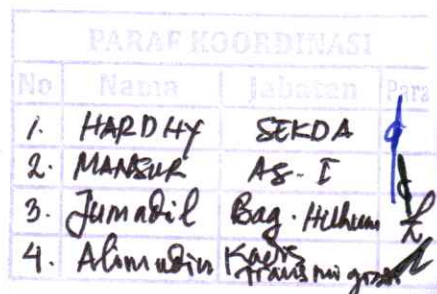 PARAF KOORDINASI
No Nama Jabatan Para
1. HARDHY SEKDA
2. MANSUR AS-I
3. Jumadil Bag. Hukum
4. Alimudin Kadis Transmigrasi